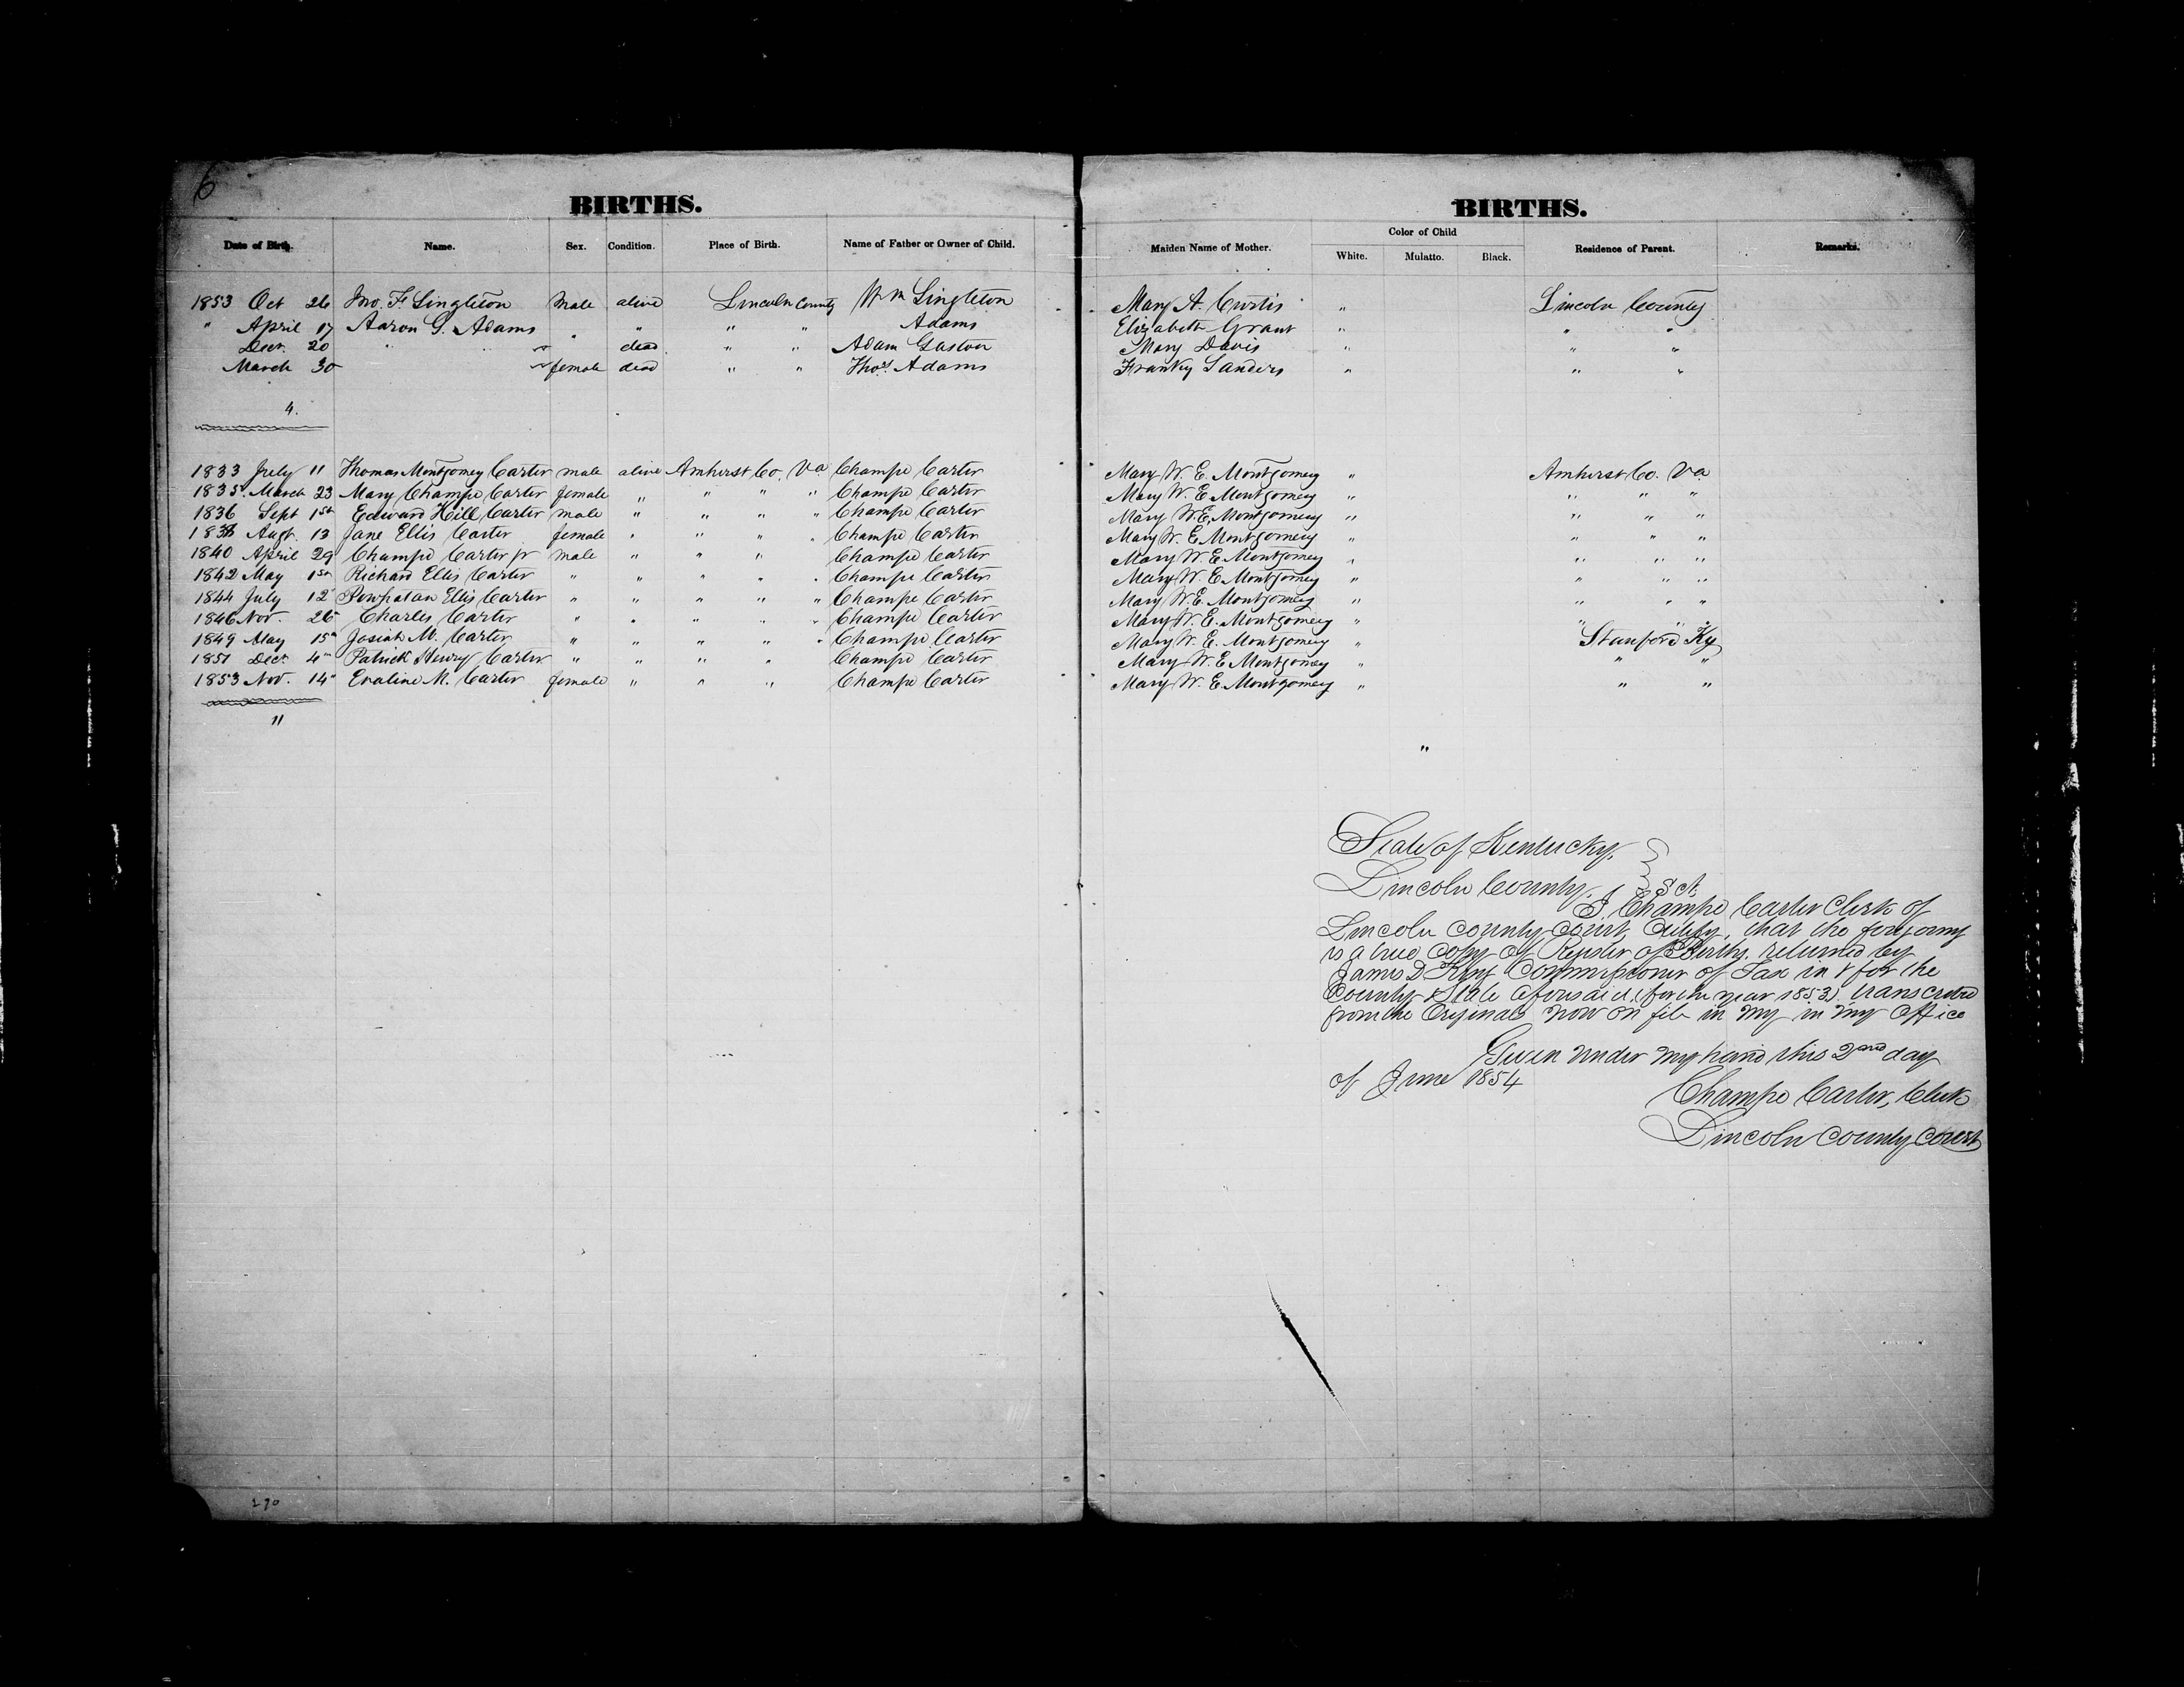 6
BIRTHS.
Date of Birth. Name. Sex. Condition. Place of Birth. Name of Father or Owner of Child.
1853 Oct 26 Jno. F. Singleton Male alive Lincoln County Wm Singleton
" April 17 Aaron G. Adams " " " " Adams
Decr. 20 " " " dead " " Adam Gaston
March 30 female dead " " Thos. Adams
4.
1833 July 11 Thomas Montgomey Carter male alive Amherst Co. Va Champe Carter
1835 March 23 Mary Champe Carter female " " " " Champe Carter
1836 Sept 1st Edward Hill Carter male " " " " Champe Carter
1838 Augt. 13 Jane Ellis Carter female " " " " Champe Carter
1840 April 29 Champe Carter jr male " " " Champe Carter
1842 May 1st Richard Ellis Carter " " " " " Champe Carter
1844 July 12 Powhatan Ellis Carter " " " " " Champe Carter
1846 Nov. 26 Charles Carter " " " " " Champe Carter
1849 May 15th Josiah M. Carter " " " " " Champe Carter
1851 Decr. 4th Patrick Henry Carter " " " " Champe Carter
1853 Nov. 14" Evaline M. Carter female " " " Champe Carter
11
270
BIRTHS.
Maiden Name of Mother. Color of Child Residence of Parent. Remarks.
White. Mulatto. Black.
Mary A. Curtis " Lincoln County
Elizabeth Grant " " "
Mary Davis " " "
Franky Sanders " " "
Mary W. E. Montgomey " Amherst Co. Va
Mary W. E. Montgomey " " " "
Mary W. E. Montgomey " " " "
Mary W. E. Montgomey " " " "
Mary W. E. Montgomey " " " "
Mary W. E. Montgomey " " " "
Mary W. E. Montgomey " " " "
Mary W. E. Montgomey " " " "
Mary W. E. Montgomey " Stanford Ky
Mary W. E. Montgomey " " "
Mary W. E. Montgomey " " "
"
State of Kentucky.
Lincoln County. } Sct.
I. Champe Carter Clerk of
Lincoln County Court, Certify, that the foregoing
is a true copy of Register of Births. returned by
James D King Commissioner of Tax in & for the
County & State aforesaid, (for the year 1853) transcribed
from the Original now on file in my in my office
Given under my hand this 2nd day
of June 1854
Champe Carter, Clerk
Lincoln County Court